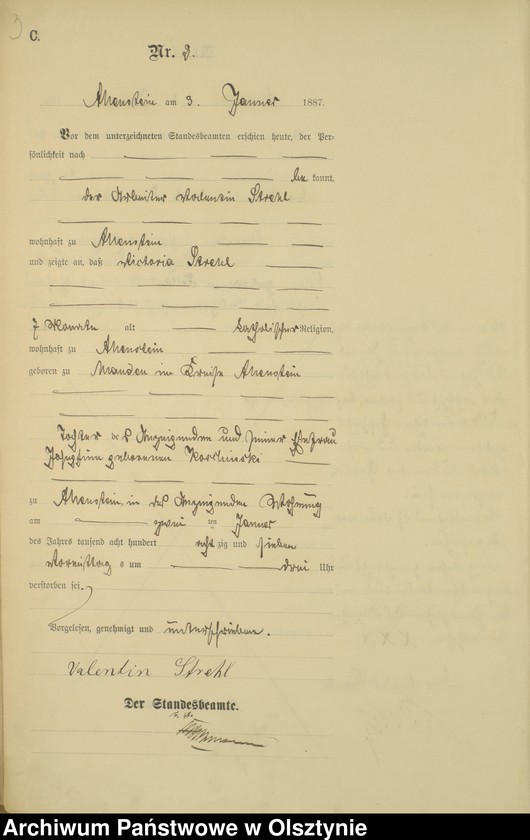 3
C.
Nr. 3.
Allenstein am 3. Januar 1887.
Vor dem unterzeichneten Standesbeamten erschien heute, der Per-
sönlichkeit nach
be kannt,
der Arbeiter Valentin Strehl
wohnhaft zu Allenstein
und zeigte an, daß Victoria Strehl
7 Monate alt katholischer Religion,
wohnhaft zu Allenstein
geboren zu im Kreise Allenstein
Tochter des Anzeigenden und seiner Ehefrau
Josephine geborenen
zu Allenstein, in des Anzeigenden Wohnung
am zwei ten Januar
des Jahres tausend acht hundert acht zig und sieben
Vormittag s um drei Uhr
verstorben sei.
Vorgelesen, genehmigt und unterschrieben.
Valentin Strehl
Der Standesbeamte.
Archiwum Państwowe w Olsztynie